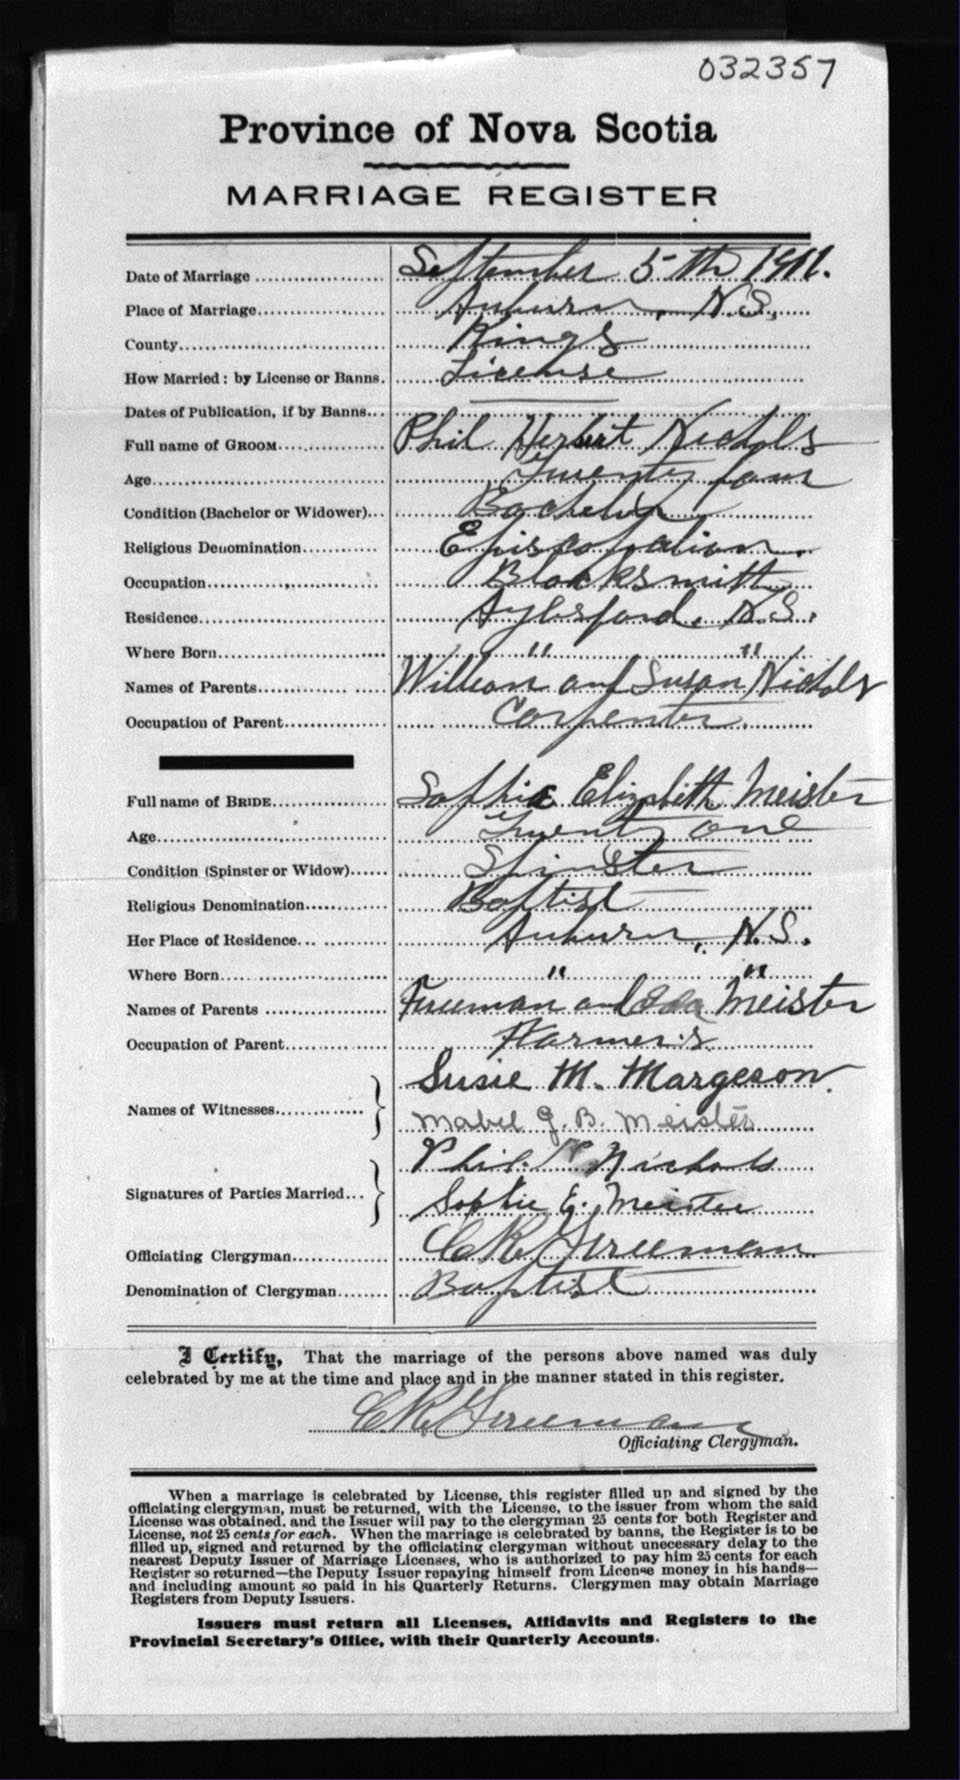 032357
Province of Nova Scotia
MARRIAGE REGISTER
Date of Marriage September 5th 1911.
Place of Marriage Auburn, N.S.
County Kings
How Married: by License or Banns. License
Dates of Publication, if by Banns
Full name of GROOM Phil Herbert Nichols
Age Twenty four
Condition (Bachelor or Widower) Bachelor
Religious Denomination Episcopalian.
Occupation Blacksmith
Residence Aylesford, N.S.
Where Born " "
Names of Parents William and Susan Nichols
Occupation of Parent Carpenter.
Full name of BRIDE Sophia Elizabeth Meister
Age Twenty one
Condition (Spinster or Widow) Spinster
Religious Denomination Baptist
Her Place of Residence Auburn, N.S.
Where Born " "
Names of Parents Freeman and Ida Meister
Occupation of Parent Farmer
Names of Witnesses Susie M. Margeson.
Mabel G. B. Meister
Signatures of Parties Married Phil. Nichols
Sophie E. Meister
Officiating Clergyman C R Freeman
Denomination of Clergyman Baptist
I Certify, That the marriage of the persons above named was duly
celebrated by me at the time and place and in the manner stated in this register.
C R Freeman
Officiating Clergyman.
When a marriage is celebrated by License, this register filled up and signed by the
officiating clergyman, must be returned, with the License, to the issuer from whom the said
License was obtained, and the Issuer will pay to the clergyman 25 cents for both Register and
License, not 25 cents for each. When the marriage is celebrated by banns, the Register is to be
filled up, signed and returned by the officiating clergyman without unecessary delay to the
nearest Deputy Issuer of Marriage Licenses, who is authorized to pay him 25 cents for each
Register so returned—the Deputy Issuer repaying himself from License money in his hands—
and including amount so paid in his Quarterly Returns. Clergymen may obtain Marriage
Registers from Deputy Issuers.
Issuers must return all Licenses, Affidavits and Registers to the
Provincial Secretary's Office, with their Quarterly Accounts.